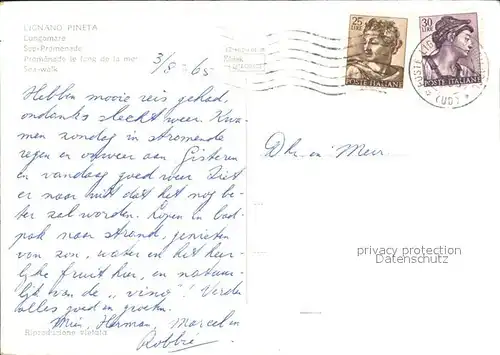 LIGNANO PINETA
Lungomare
See-Promenade
Promenade le long de la mer
Sea-walk
3/8 '65
25
LIRE
POSTE ITALIANE
30
LIRE
POSTE ITALIANE
(UD)
Hebben mooie reis gehad,
ondanks slecht weer. Kwa-
men zondag in stromende
regen en onweer aan. Gisteren
en vandaag goed weer. Ziet
er naar uit dat het nog be-
ter zal worden. Lopen in bad-
pak naar strand, genieten
van zon, water en het heer-
lijke fruit hier, en natuur-
lijk van de "vino"! Verder
alles goed en groeten.
Mien, Herman, Marcel en
Robbie
Riproduzione vietata
Dhr. en Mevr.
privacy protection
Datenschutz